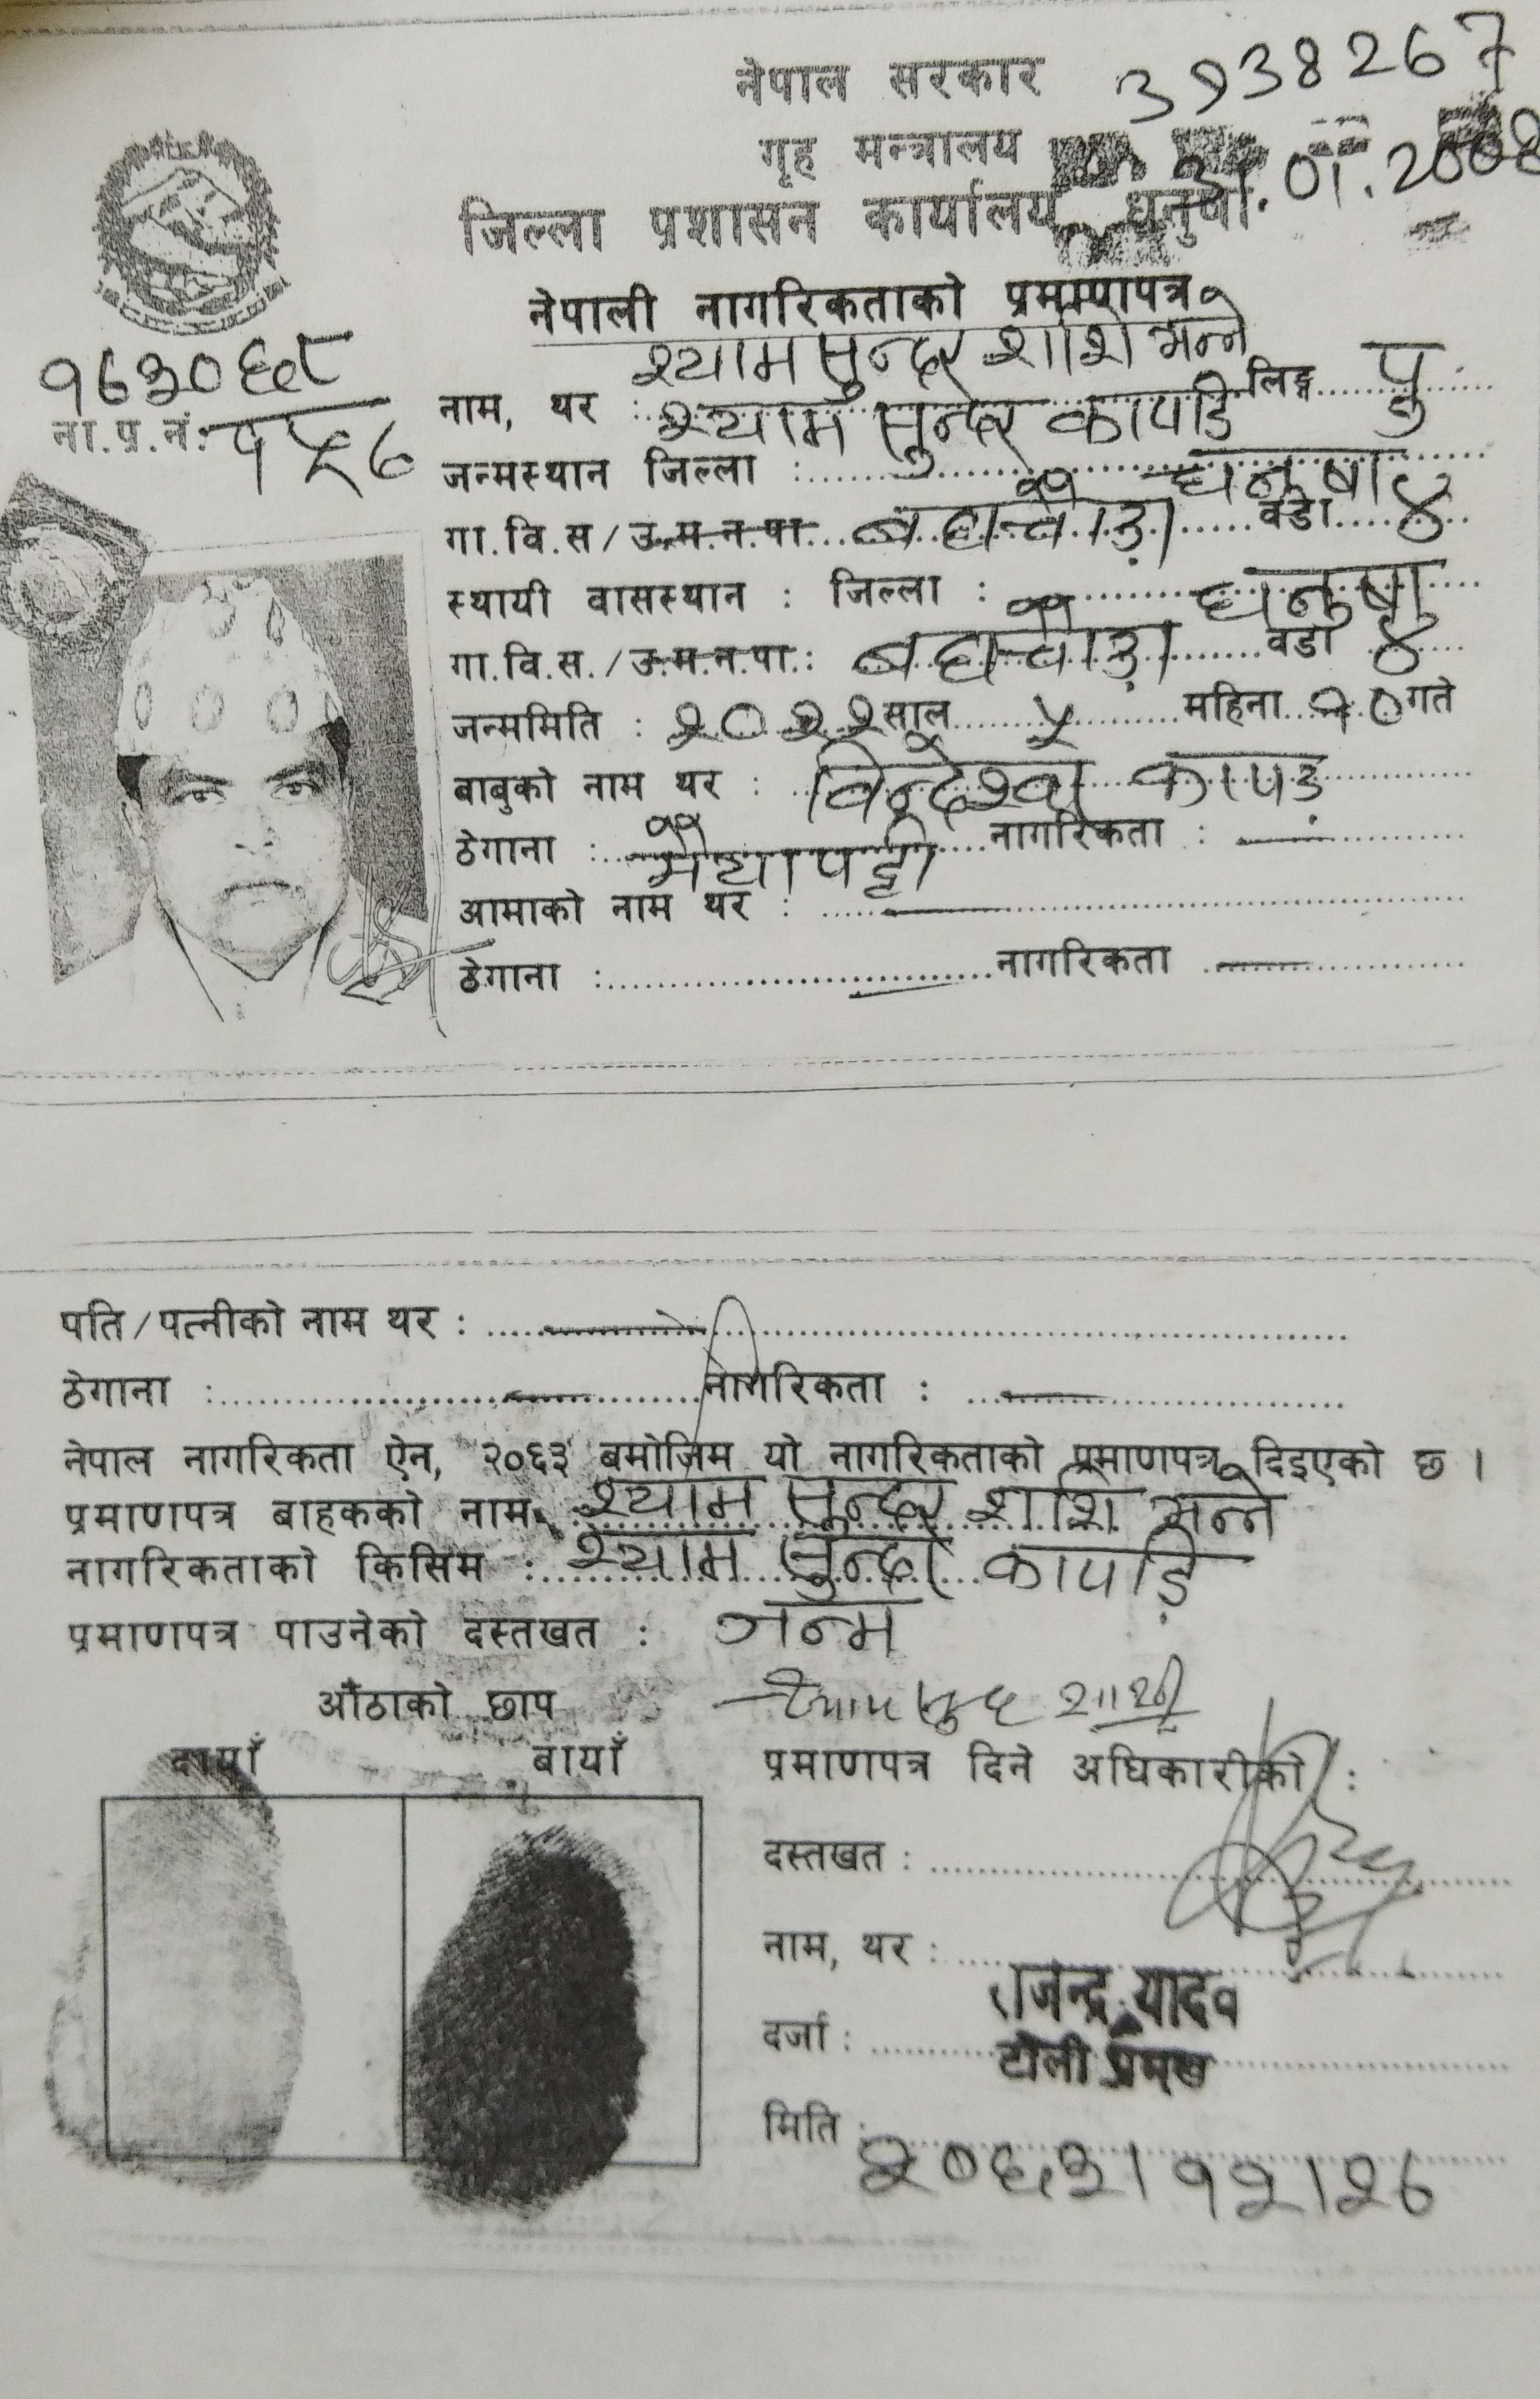 नेपाल सरकार 3938267
गृह मन्त्रालय 31.01.2008
जिल्ला प्रशासन कार्यालय, धनुषा
नेपाली नागरिकताको प्रमाणपत्र
श्याम सुन्दर शशि भन्ने
नाम, थर : श्याम सुन्दर कापडि लिङ्ग पु
ना.प्र.नं.
जन्मस्थान जिल्ला : धनुषा
गा.वि.स/उ.म.न.पा. वडा ४
स्थायी वासस्थान : जिल्ला : धनुषा
गा.वि.स./उ.म.न.पा.: वडा ४
जन्ममिति : २०२२ साल ५ महिना १० गते
बाबुको नाम थर : बिन्देश्वर कापड
ठेगाना : नागरिकता :
आमाको नाम थर :
ठेगाना : नागरिकता
पति/पत्नीको नाम थर :
ठेगाना : नागरिकता :
नेपाल नागरिकता ऐन, २०६३ बमोजिम यो नागरिकताको प्रमाणपत्र दिइएको छ ।
प्रमाणपत्र बाहकको नाम श्याम सुन्दर शशि भन्ने
नागरिकताको किसिम : श्याम सुन्दर कापडि
प्रमाणपत्र पाउनेको दस्तखत : जन्म
औंठाको छाप
दायाँ बायाँ
प्रमाणपत्र दिने अधिकारीको :
दस्तखत :
नाम, थर : राजेन्द्र यादव
दर्जा : टोली प्रमुख
मिति : २०६३।१२।२७